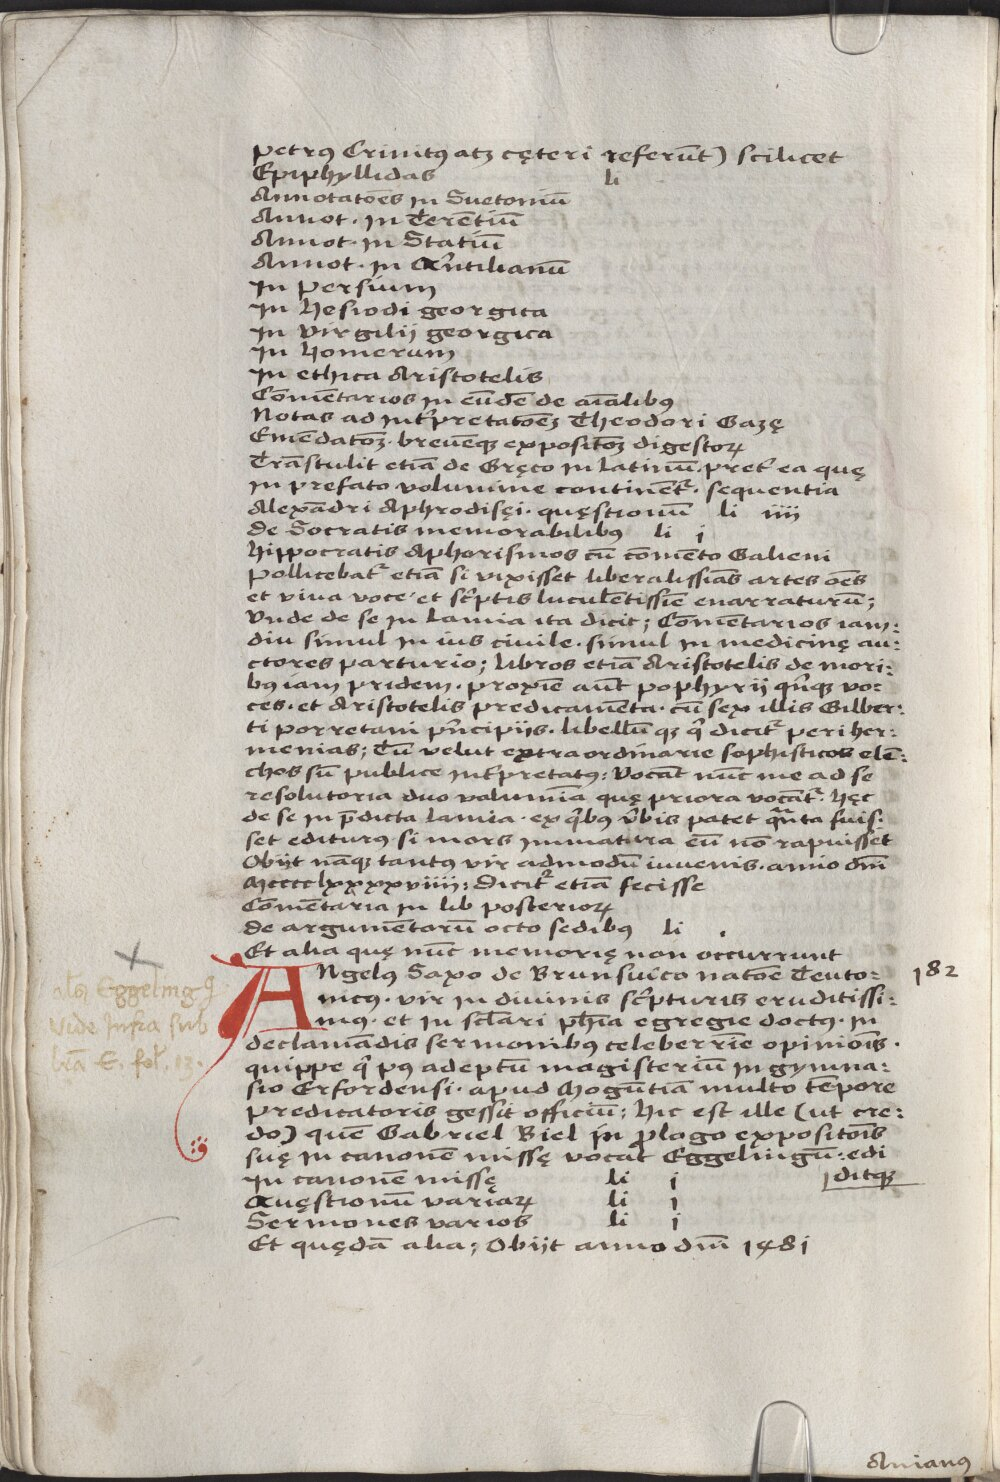 petrꝰ Crinitꝰ atqꝫ cęteri referūt) scilicet
Epiphyllidas li
Annotatōes in Suetoniū
Annot. in Terētiū
Annot. in Statiū
Annot. in Quītilianū
In persium
In hesiodi georgica
In virgilij georgica
In homerum
In ethica Aristotelis
Cōmētarios in eūdē de aīalibꝰ
Notas ad int̄pretatōeꝫ Theodori Gazę
Emēdatōeꝫ. breuēqꝫ expositōeꝫ digestoꝝ
Trāstulit etiā de Gręco in latinū. pret̄ ea quę
in prefato volumine continēt̄. sequentia
Alexādri Aphrodisęi. quęstionū li iiii
de Socratis memorabilibꝰ li j
hippocratis Aphorismos cū cōmēto Galieni
Pollicebat̄ etiā si vixisset liberalissīas artes oēs
et viua voce et sc̄ptis luculētissīe enarraturū;
Vnde de se in Lamia ita dicit; Comētarios iam:
diu simul in ius ciuile. simul in medicinę au:
ctores parturio; libros etiā Aristotelis de mori:
bꝰ iam pridem. proxīe aūt pophyrij q̄nqꝫ vo:
ces. et Aristotelis predicamēta. cū sex illis Gilber:
ti porretani p̄ncipijs. libellūqꝫ q̄ dicit̄ periher:
menias; Tū velut extraordinarie sophisticos elē:
chos sū publice int̄pretatꝰ: Vocāt nūc me ad se
resolutoria duo volumīa quę priora vocāt̄. hęc
de se in p̄dicta lamia. ex q̄bꝰ v̄bis patet quāta fuis:
set editurꝰ. si mors inmatura eū nō rapuisset
Obijt nāqꝫ tantꝰ vir admodū iuuenis. anno dm̄
Mccccłxxxxviiii: Dicit̄ etiā fecisse
Comētaria in lib posterioꝝ
de argumētorū octo sedibꝰ li .
Et alia quę nūc memorię non occurrunt
ANgelꝰ Saxo de Brunsuico natōe Teuto: 182
nicꝰ. vir in diuinis sc̄pturis eruditissi:
mꝰ. et in sc̄lari ph̄ia egregie doctꝰ. in
declamādis sermonibꝰ celeberrīe opinioīs.
quippe q̄ pꝰ adeptū magisteriū in gymna:
sio Erfordensi. apud Mogūtiā multo tēpore
predicatoris gessit officiū; hic est ille (ut cre:
do) quē Gabriel Biel in plago expositoīs
suę in canonē missę vocat Eggelingū: edi
ditqꝫ
In canonē missę li j
Quęstionū variaꝝ li j
Sermones varios li j
Et quędā alia; Obijt anno dm̄ 1481
Eggeling
Vide Infra sub
E. fol. 13.
Anianꝰ